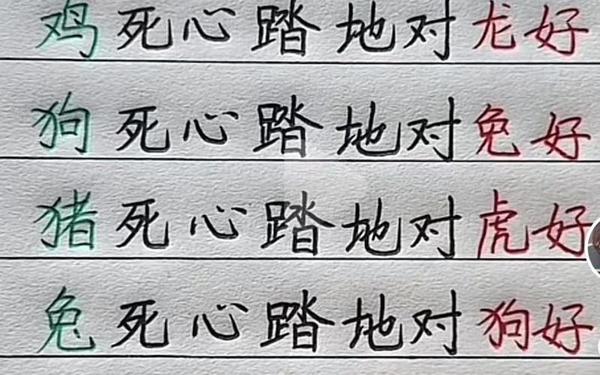 鸡死心踏地对龙好
狗死心踏地对兔好
猪死心踏地对虎好
兔死心踏地对狗好